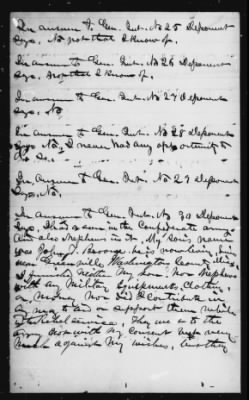 In answer to Gen. Int. No 25 Deponent
says, No not that I know of.
In answer to Gen. Int. No 26 Deponent
says, not that I know of.
In answer to Gen. Int. No 27 Deponent
says, No
In answer to Gen. Int. No 28 Deponent
says No, I never had any opportunity to
do so.
In answer to Gen. Int. No 29 Deponent
says, No.
In answer to Gen. Int. No 30 Deponent
says I had a son in the Confederate army
and also Nephews in it. My Son's name
was John J. he is now living
near Greenville, Washington County Miss.
I furnished neither My Son nor Nephews
with any Military Equipments, Clothing,
or Money Nor did I contribute in
any way to aid or support them while
in Rebel service. They were in the
army not with My consent but very
Much against My wishes, Another